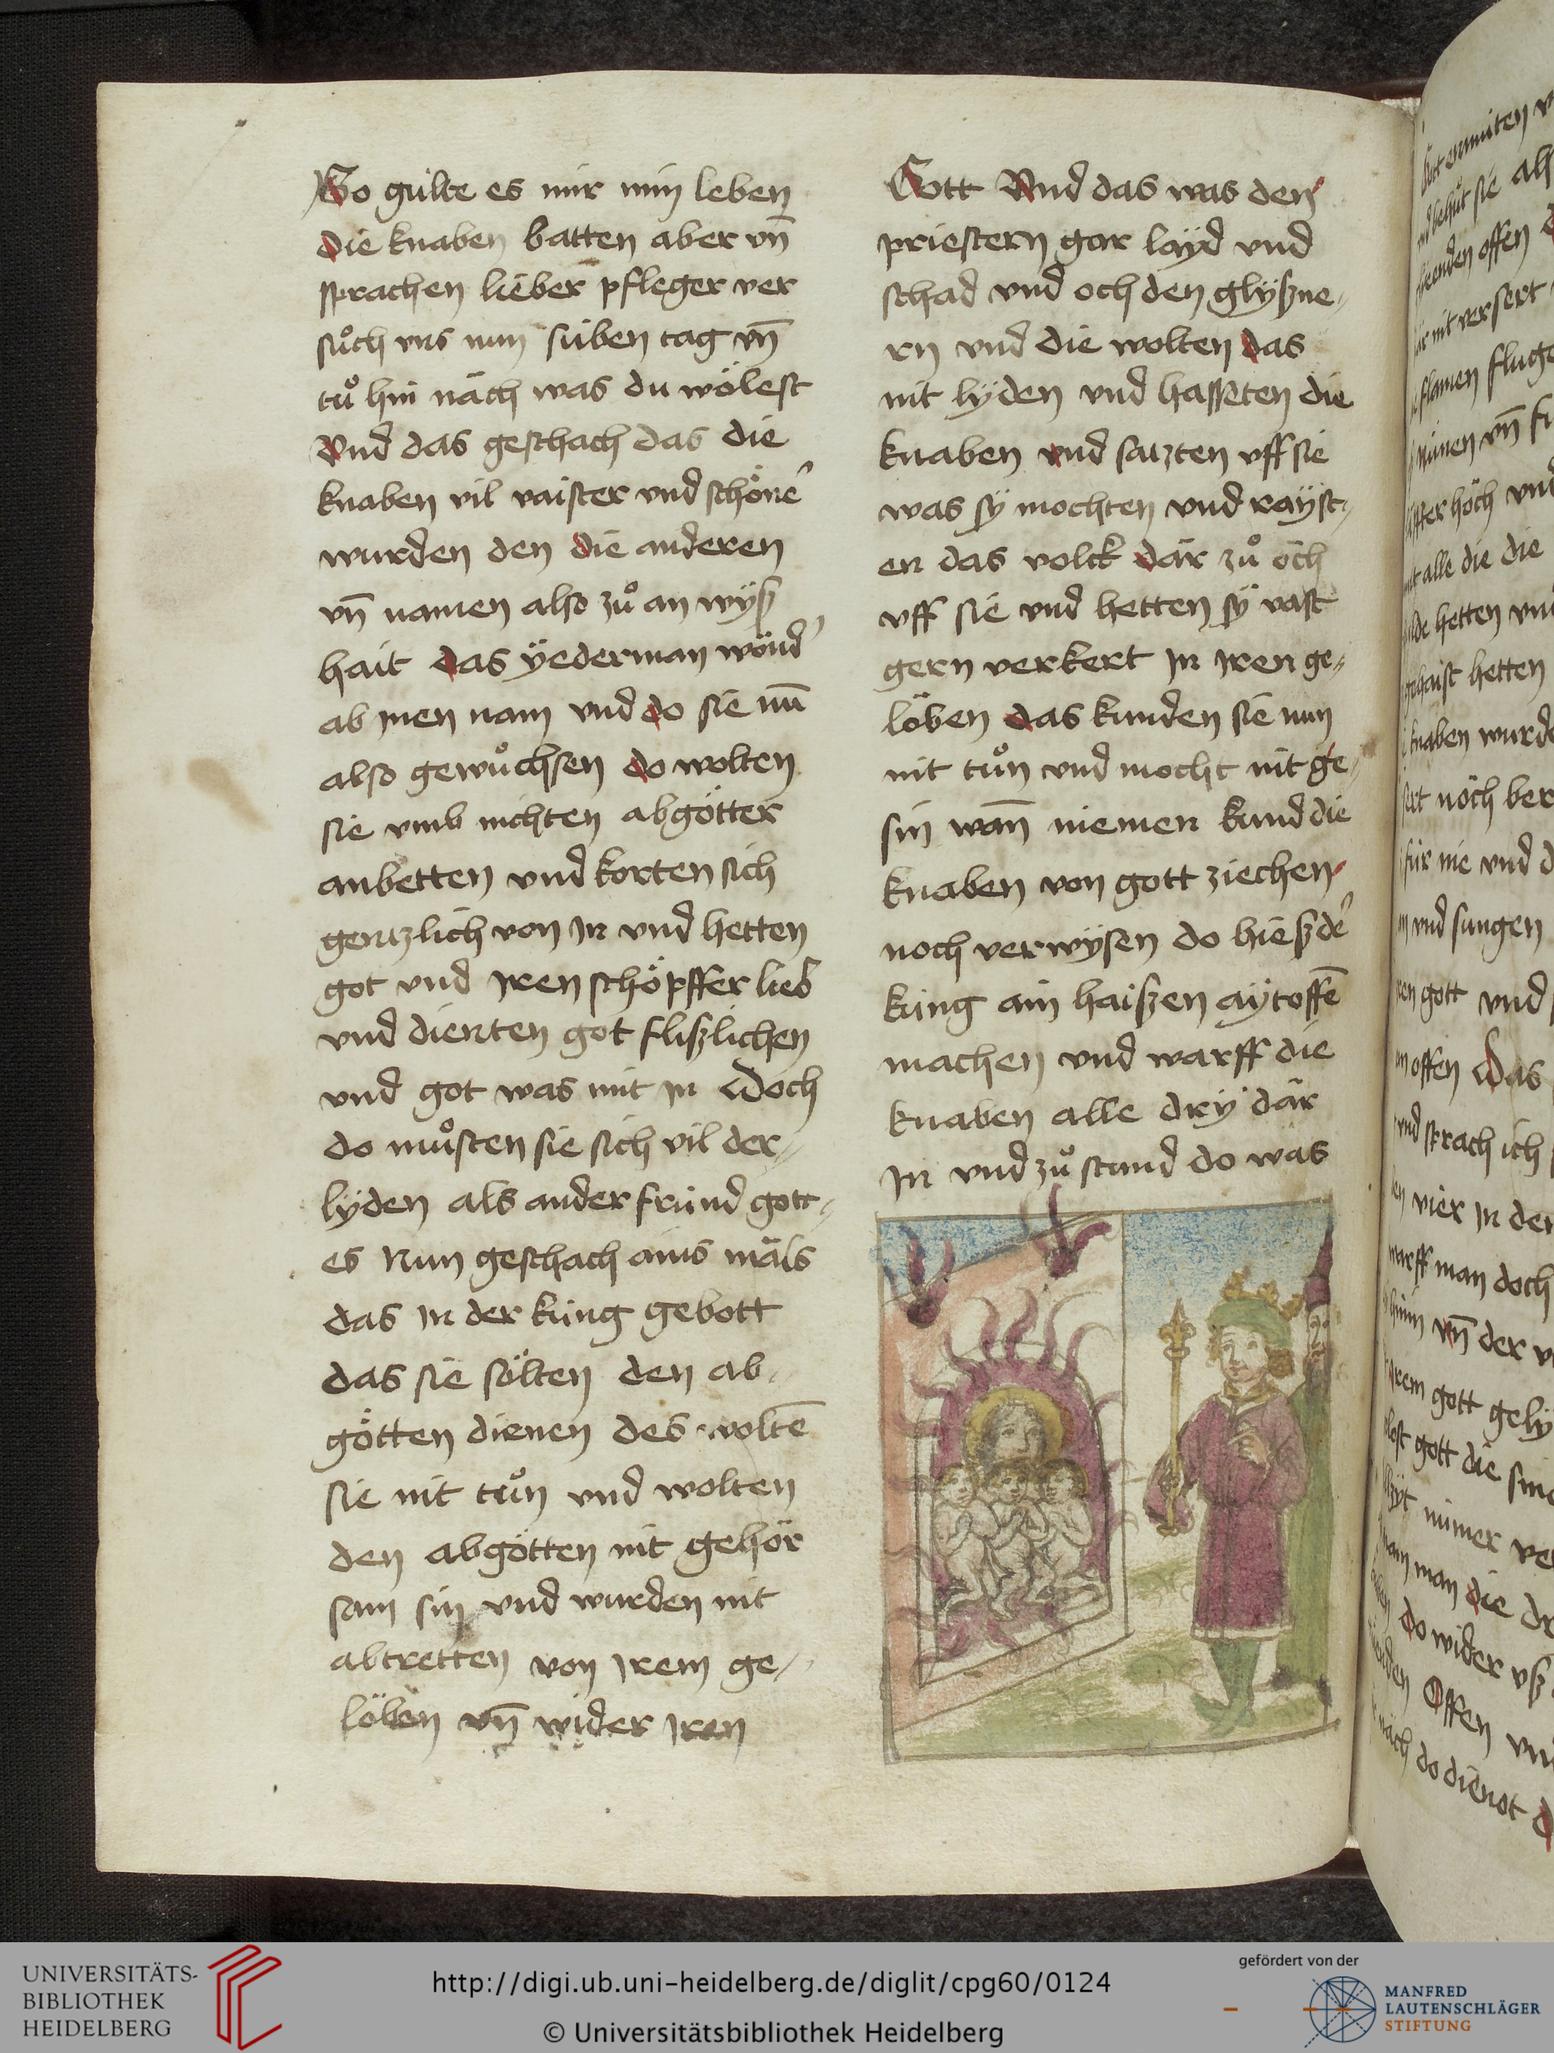 So gülte es mir min leben
die knaben batten aber vn̄
sprachen lieber pfleger ver
sůch vns nun siben tag vn̄
tů hin nāch was du wölest
Vnd das geschach das die
knaben vil vaister vnd schöne᷑
wurden den die anderen
vn̄ namen also zů an wÿß
hait das ÿederman wond᷑
ab jnen nam vnd do sie nu̅
also gewůchsen do wolten
sie vmb nichten abgötter
anbetten vnd korten sich
gentzlich von In vnd hetten
got vnd Iren schöpffer lieb
vnd dienten got flißlichen
vnd got was mit In Doch
do můsten sie sich vil der-
lyden als ander fründ gott-
es Nun geschach ains māls
das In der küng gebott
das sie sölten den ab-
götten dienen des wolte̅
sie nit tůn vnd wolten
den abgötten nit gehör
sam sin vnd wurden nit
abtretten von Irem ge-
löben vn̄ wider Iren
Gott Vnd das was den
priestern gar layd vnd
schad vnd och den glyßne-
rn vnd die wolten das
nit lyden vnd hasseten die
knaben vnd satzten vff sie
was sÿ mochten vnd raÿst-
en das volck där zů öch
vff sie vnd hetten sÿ vast
gern verkert In Iren ge-
löben das kunden sie nun
nit tůn vnd mocht nit ge-
sin wan̄ niemen kund die
knaben von gott ziechen
noch verwÿsen do hieß de᷑
küng ain haißen aÿtoffe̅
machen vnd warff die
knaben alle drÿ där
In vnd zů stund do was
alle die die
hetten vnd
hetten
knaben wurde
nöch ber
für nie vnd d
vnd sungen
gott vnd
offen Das
vnd sprach ich
vier In der
warff man doch
vn̄ der
Irem gott
gott die
nimer
man die
do wider vß
Offen vn
do dienot
UNIVERSITÄTS-
BIBLIOTHEK
HEIDELBERG
http://digi.ub.uni-heidelberg.de/diglit/cpg60/0124
© Universitätsbibliothek Heidelberg
gefördert von der
MANFRED
LAUTENSCHLÄGER
STIFTUNG